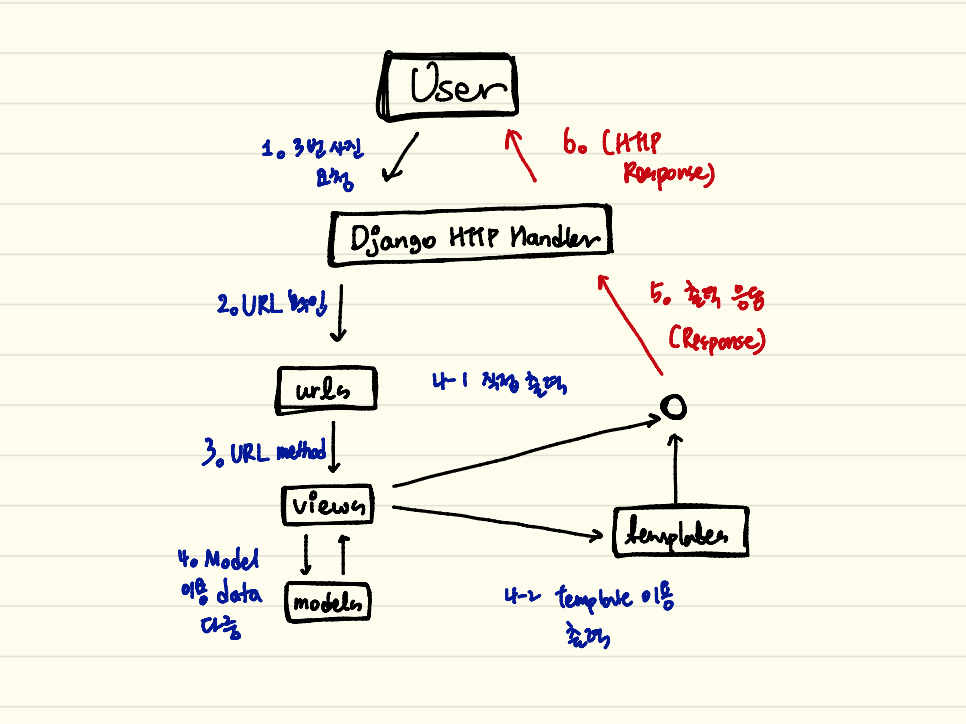 User
1. 3번 사진
요청
6. (HTTP
Response)
Django HTTP Handler
2. URL 확인
5. 출력 응답
(Response)
urls
4-1 직접 출력
3. URL method
views
templates
4. Model
이용 data
다룸
models
4-2 template 이용
출력